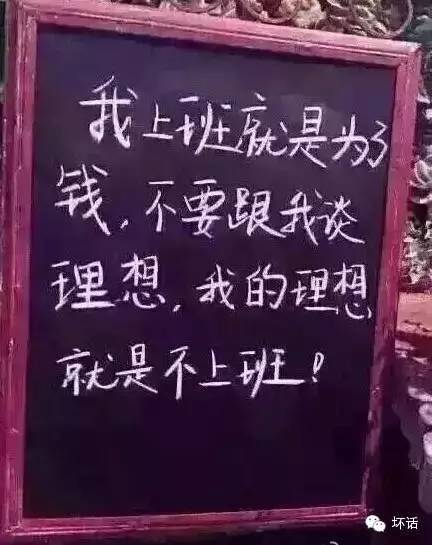 我上班就是为了
钱，不要跟我谈
理想，我的理想
就是不上班！
坏话